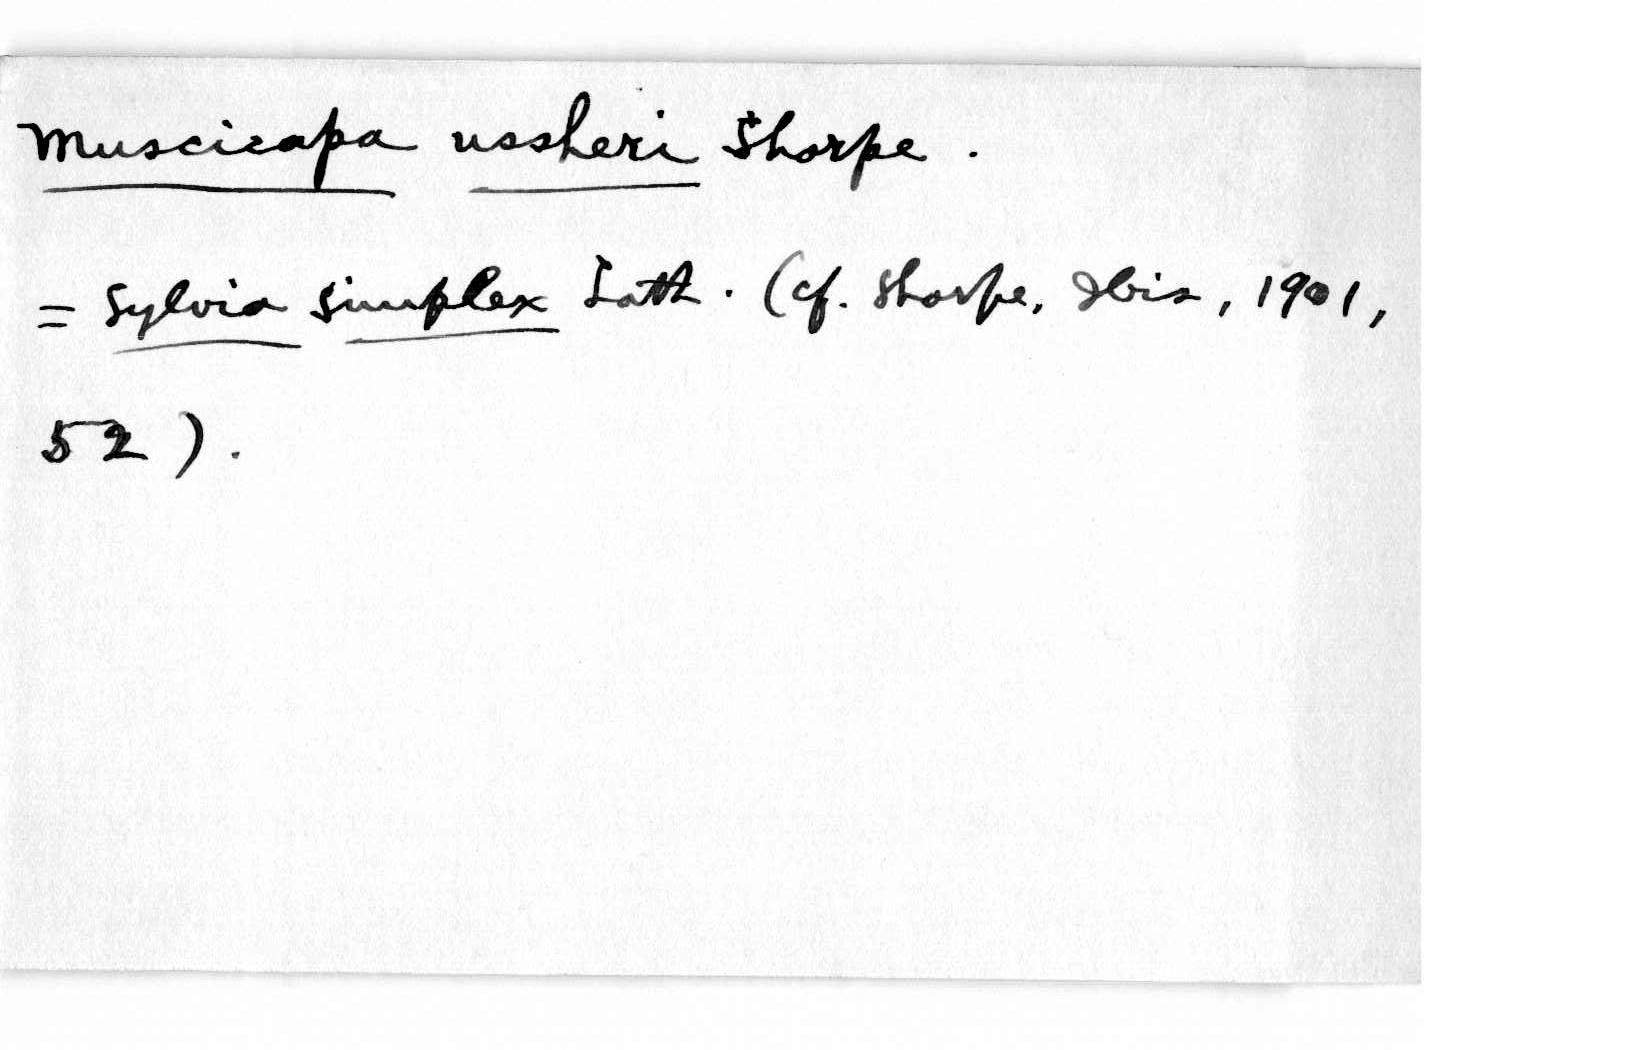 Muscicapa ussheri Sharpe.
= Sylvia simplex Lath. (cf. Sharpe, Ibis, 1901,
52).